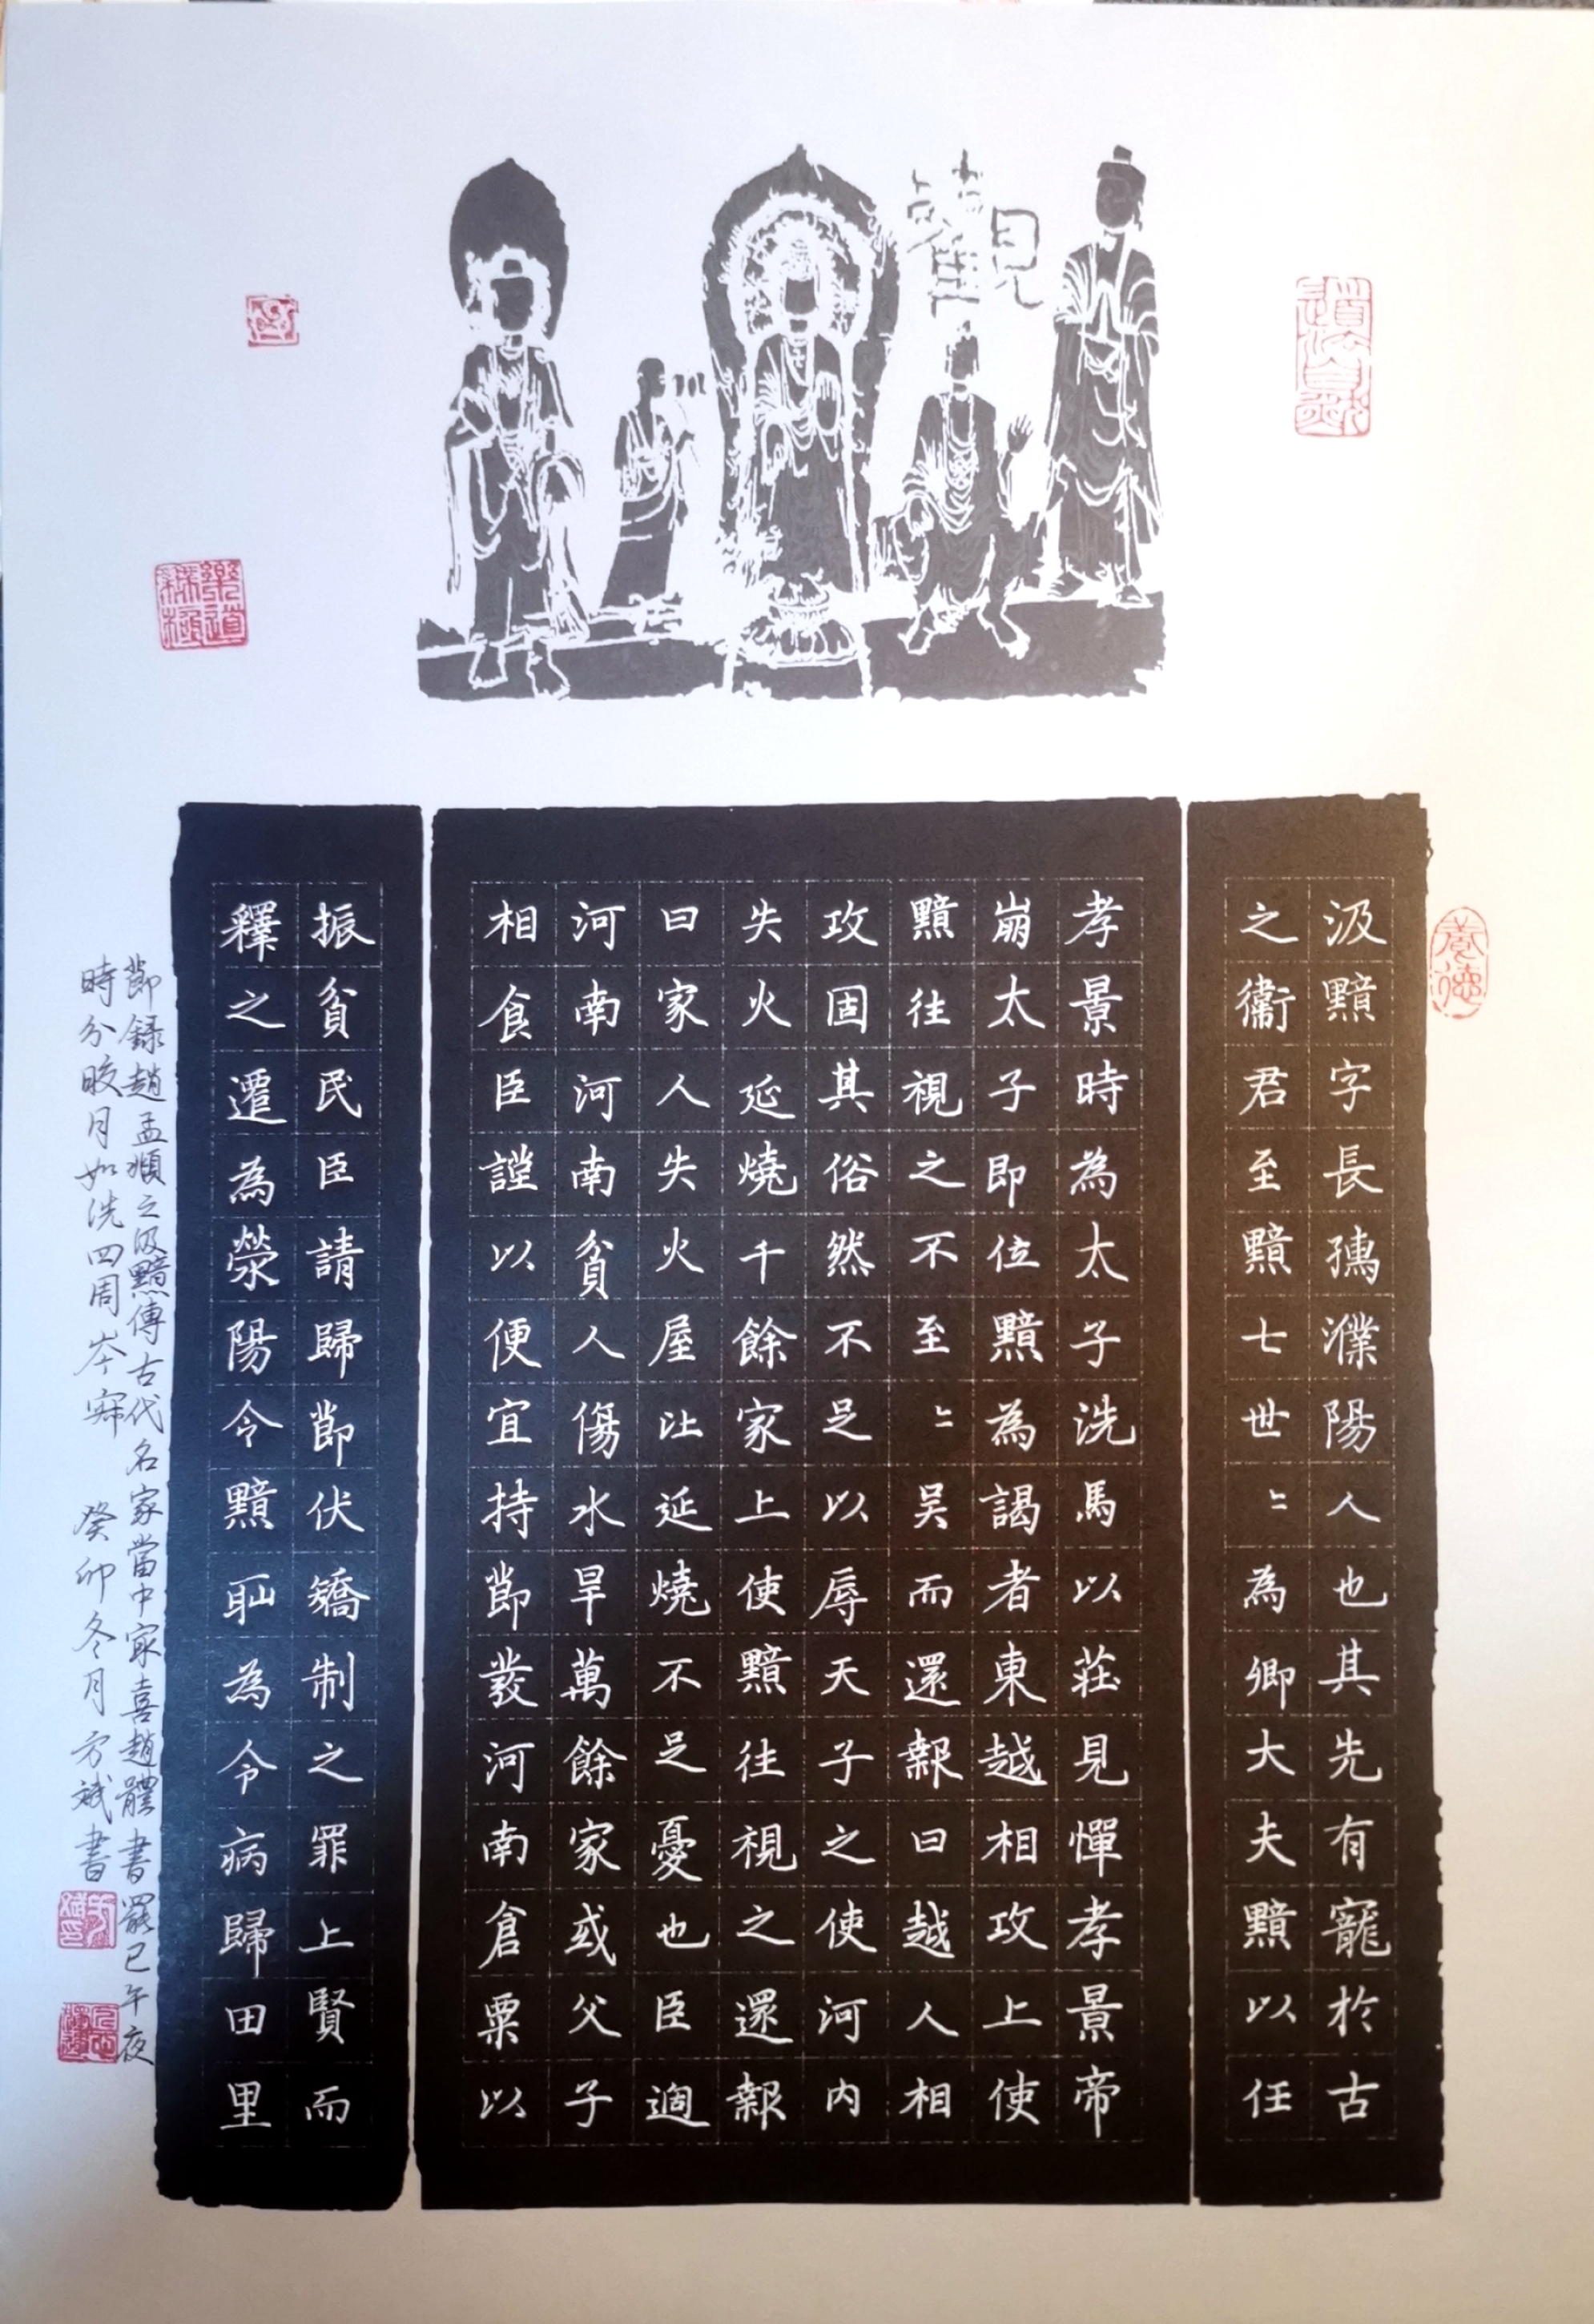 觀
道法自然
養德
汲黯字長孺濮陽人也其先有寵於古
之衞君至黯七世〻為卿大夫黯以任
孝景時為太子洗馬以莊見憚孝景帝
崩太子即位黯為謁者東越相攻上使
黯往視之不至〻吴而還報曰越人相
攻固其俗然不足以辱天子之使河内
失火延燒千餘家上使黯往視之還報
曰家人失火屋比延燒不足憂也臣過
河南河南貧人傷水旱萬餘家或父子
相食臣謹以便宜持節發河南倉粟以
振貧民臣請歸節伏矯制之罪上賢而
釋之遷為滎陽令黯恥為令病歸田里
節録趙孟頫之汲黯傳古代名家當中家喜趙體書罷已午夜
時分皎月如洗四周岑寂 癸卯冬月方斌書
樂道